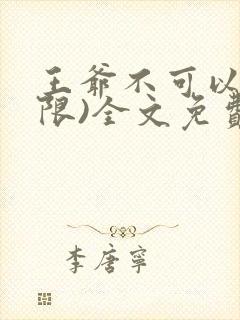 王爷不可以
限)全文免費
李唐寧